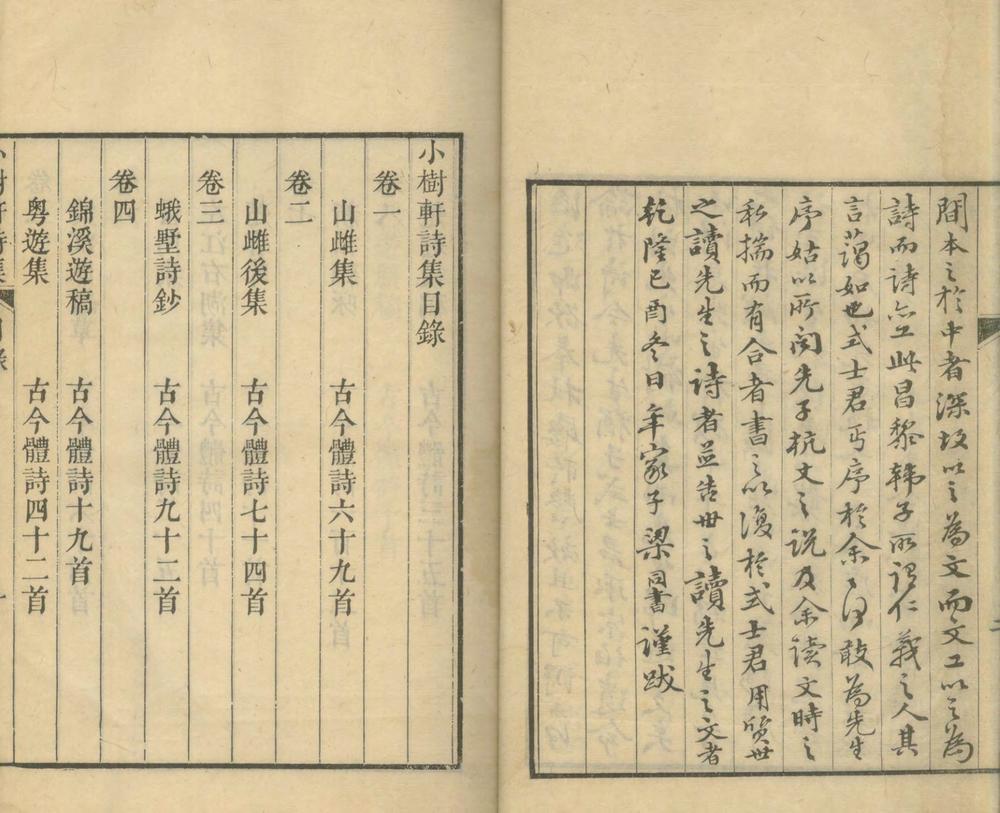 間本之於中者深故以之為文而文工以之為
詩而詩亦工此昌黎韓子所謂仁義之人其
言藹如也式士君丐序於余々何敢為先生
序姑以所聞先子抗文之説及余读文時之
私揣而有合者書之以復於式士君用质世
之讀先生之詩者並告世之讀先生之文者
乾隆己酉冬日年家子梁同書謹跋
小樹軒詩集目錄
卷一
山雌集　古今體詩六十九首
卷二
山雌後集　古今體詩七十四首
卷三
蛾墅詩鈔　古今體詩九十二首
卷四
錦溪遊稿　古今體詩十九首
粵遊集　古今體詩四十二首